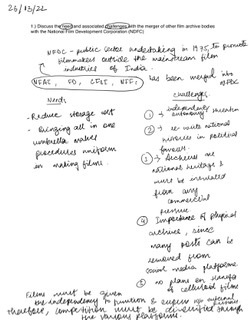 26/13/22
1.) Discuss the need and associated challenges with the merger of other film archive bodies
with the National Film Development Corporation (NDFC)
NFDC - public sector undertaking in 1975, to promote
filmmakers outside the mainstream film
industries of India.
NFAI, FD, CFSI, NFF, has been merged into
NFDC
Merits
- Reduce storage cost
- Bringing all in one
umbrella makes
procedures uniform
in making films.
Challenges
① → independent
autonomy threaten
② → national
in political
favours.
③ → Archives are
national heritage &
must be insulated
from any
commercial
pressure
④ Importance of physical
archives, since
many posts can be
removed from
social media platforms
⑤ no plans on transfer
of celluloid films
Films must be given
the independency to function &
therefore, competition must be diversified through
the various platforms.